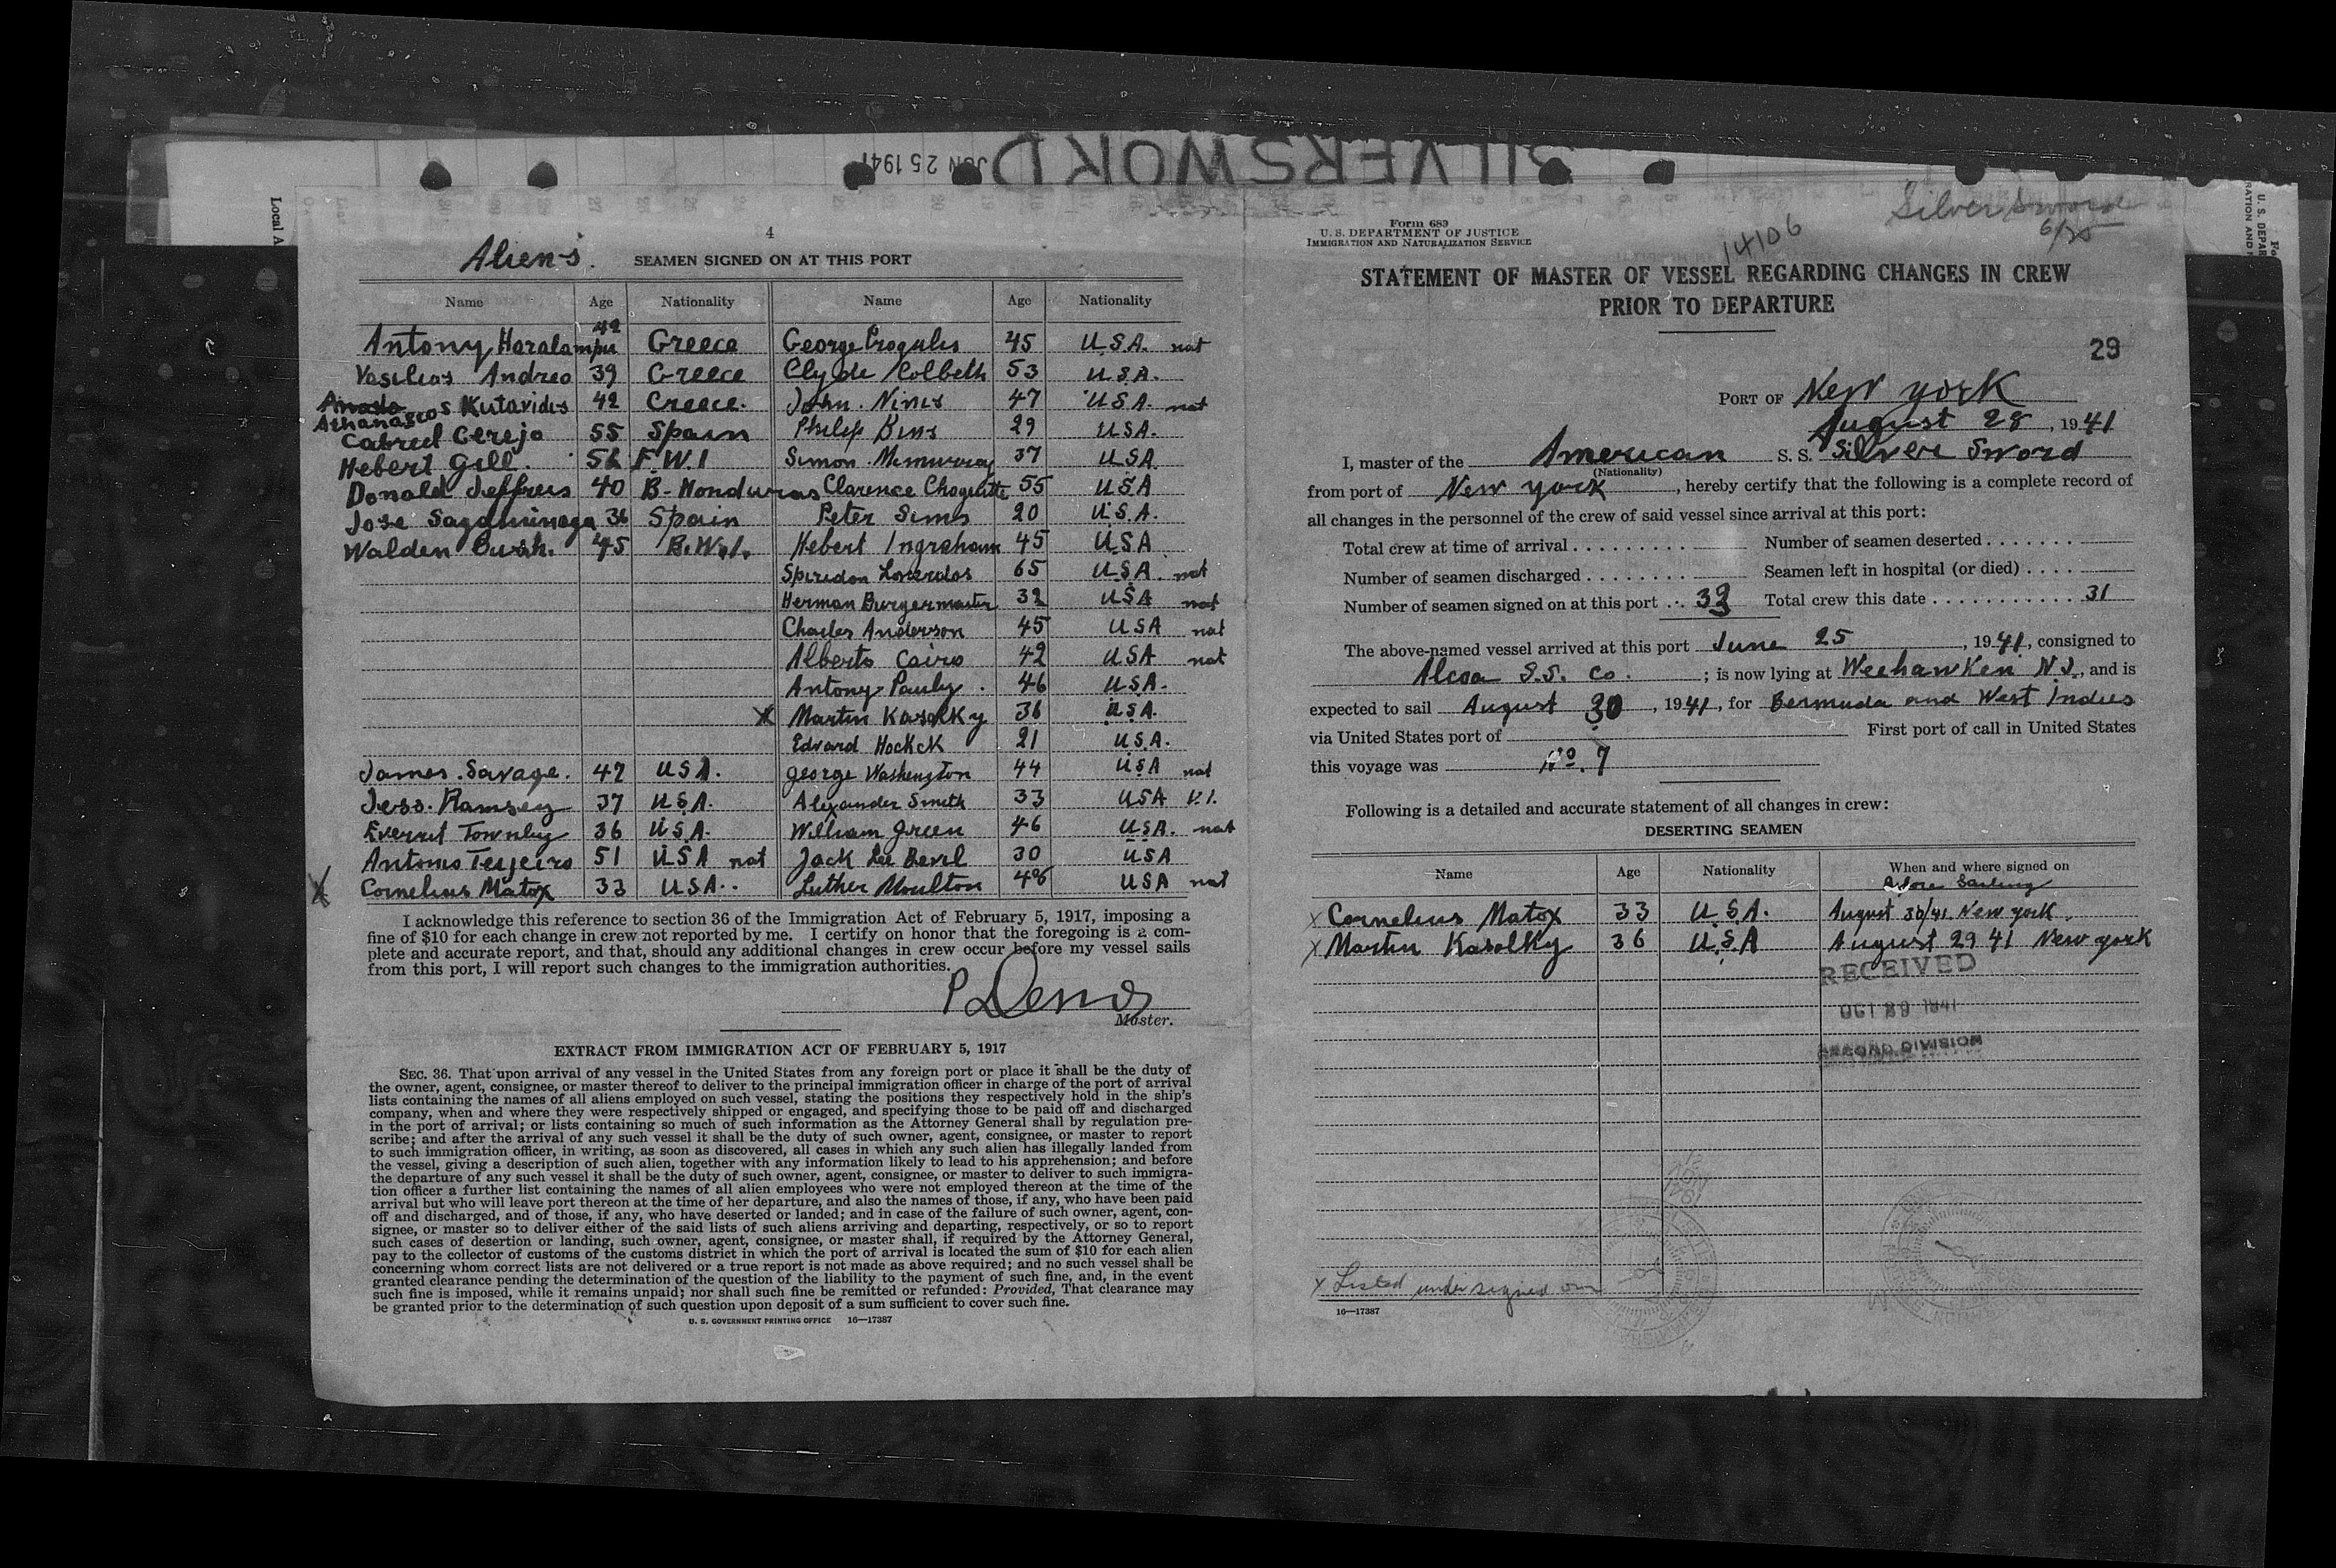 SILVERSWORD
JUN 25 1941
Local A
4
Aliens. SEAMEN SIGNED ON AT THIS PORT
Name Age Nationality Name Age Nationality
Antony Haralampu 42 Greece George Progulis 45 U.S.A. nat
Vasilios Andreo 39 Greece Clyde Colbeth 53 U.S.A.
Athanasios Kutavidis 42 Greece. John. Nines 47 U.S.A. nat
Gabriel Cerejo 55 Spain Philip Bins 29 USA.
Hebert Gill. 56 F.W.I Simon Mcmurray 37 USA.
Donald Jeffreis 40 B-Honduras Clarence Choquette 55 USA
Jose Sagaminaga 36 Spain Peter Sims 20 U.S.A.
Walden Bush. 45 B.W.I. Hebert Ingraham 45 USA
Spiridon Loverdos 65 U.S.A. nat
Herman Burgermaster 32 USA nat
Charles Anderson 45 USA nat
Alberto Cairo 42 USA nat
Antony Pauly. 46 U.S.A.
X Martin Kasolky 36 U.S.A.
Edvard Hockck 21 U.S.A.
James. Savage. 47 USA. George Washengton 44 USA nat
Jess. Ramsey 37 U.S.A. Alexander Smith 33 USA V.I.
Everrit Townley 36 U.S.A. William Green 46 USA. nat
Antonio Tesjeiro 51 USA nat Jack Lee Bevil 30 USA
X Cornelius Matox 33 USA.. Luther Moulton 48 USA nat
I acknowledge this reference to section 36 of the Immigration Act of February 5, 1917, imposing a
fine of $10 for each change in crew not reported by me. I certify on honor that the foregoing is a com-
plete and accurate report, and that, should any additional changes in crew occur before my vessel sails
from this port, I will report such changes to the immigration authorities.
Master.
EXTRACT FROM IMMIGRATION ACT OF FEBRUARY 5, 1917
SEC. 36. That upon arrival of any vessel in the United States from any foreign port or place it shall be the duty of
the owner, agent, consignee, or master thereof to deliver to the principal immigration officer in charge of the port of arrival
lists containing the names of all aliens employed on such vessel, stating the positions they respectively hold in the ship's
company, when and where they were respectively shipped or engaged, and specifying those to be paid off and discharged
in the port of arrival; or lists containing so much of such information as the Attorney General shall by regulation pre-
scribe; and after the arrival of any such vessel it shall be the duty of such owner, agent, consignee, or master to report
to such immigration officer, in writing, as soon as discovered, all cases in which any such alien has illegally landed from
the vessel, giving a description of such alien, together with any information likely to lead to his apprehension; and before
the departure of any such vessel it shall be the duty of such owner, agent, consignee, or master to deliver to such immigra-
tion officer a further list containing the names of all alien employees who were not employed thereon at the time of the
arrival but who will leave port thereon at the time of her departure, and also the names of those, if any, who have been paid
off and discharged, and of those, if any, who have deserted or landed; and in case of the failure of such owner, agent, con-
signee, or master so to deliver either of the said lists of such aliens arriving and departing, respectively, or so to report
such cases of desertion or landing, such owner, agent, consignee, or master shall, if required by the Attorney General,
pay to the collector of customs of the customs district in which the port of arrival is located the sum of $10 for each alien
concerning whom correct lists are not delivered or a true report is not made as above required; and no such vessel shall be
granted clearance pending the determination of the question of the liability to the payment of such fine, and, in the event
such fine is imposed, while it remains unpaid; nor shall such fine be remitted or refunded: Provided, That clearance may
be granted prior to the determination of such question upon deposit of a sum sufficient to cover such fine.
U. S. GOVERNMENT PRINTING OFFICE 16—17387
Silver Sword
6/25
14106
Form 689
U. S. DEPARTMENT OF JUSTICE
IMMIGRATION AND NATURALIZATION SERVICE
STATEMENT OF MASTER OF VESSEL REGARDING CHANGES IN CREW
PRIOR TO DEPARTURE
29
PORT OF New york
August 28, 1941
I, master of the American S. S. Silver Sword
(Nationality)
from port of New york, hereby certify that the following is a complete record of
all changes in the personnel of the crew of said vessel since arrival at this port:
Total crew at time of arrival Number of seamen deserted
Number of seamen discharged Seamen left in hospital (or died)
Number of seamen signed on at this port 33 Total crew this date 31
The above-named vessel arrived at this port June 25, 1941, consigned to
Alcoa S.S. Co.; is now lying at Weehawken N.J., and is
expected to sail August 30, 1941, for Bermuda and West Indies
via United States port of First port of call in United States
this voyage was No. 7
Following is a detailed and accurate statement of all changes in crew:
DESERTING SEAMEN
Name Age Nationality When and where signed on
Before Sailing
X Cornelius Matox 33 U.S.A. August 30/41 New york.
X Martin Kasolky 36 U.S.A August 29 41 New york
RECEIVED
OCT 29 1941
SECOND DIVISION
X Listed under signed on
16—17387